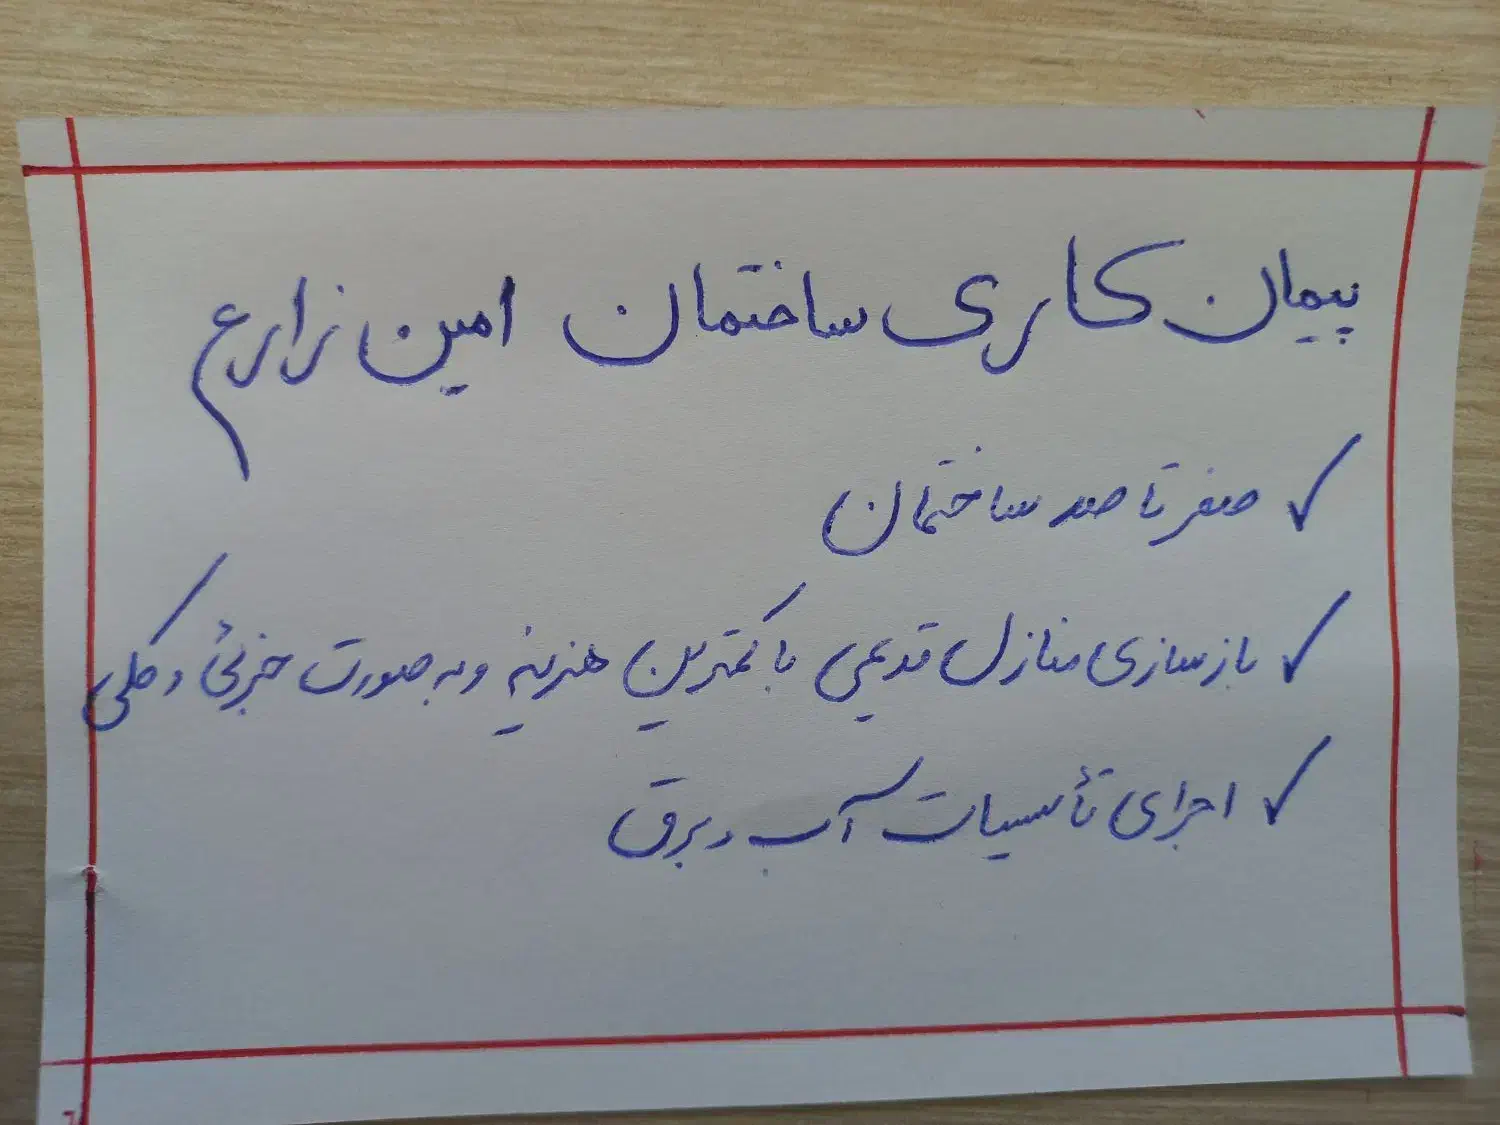 پیمان کاری ساختمان امین زارع
✓ صفر تا صد ساختمان
✓ بازسازی منازل قدیمی با کمترین هزینه و به صورت جزئی و کلی
✓ اجرای تأسیسات آب و برق